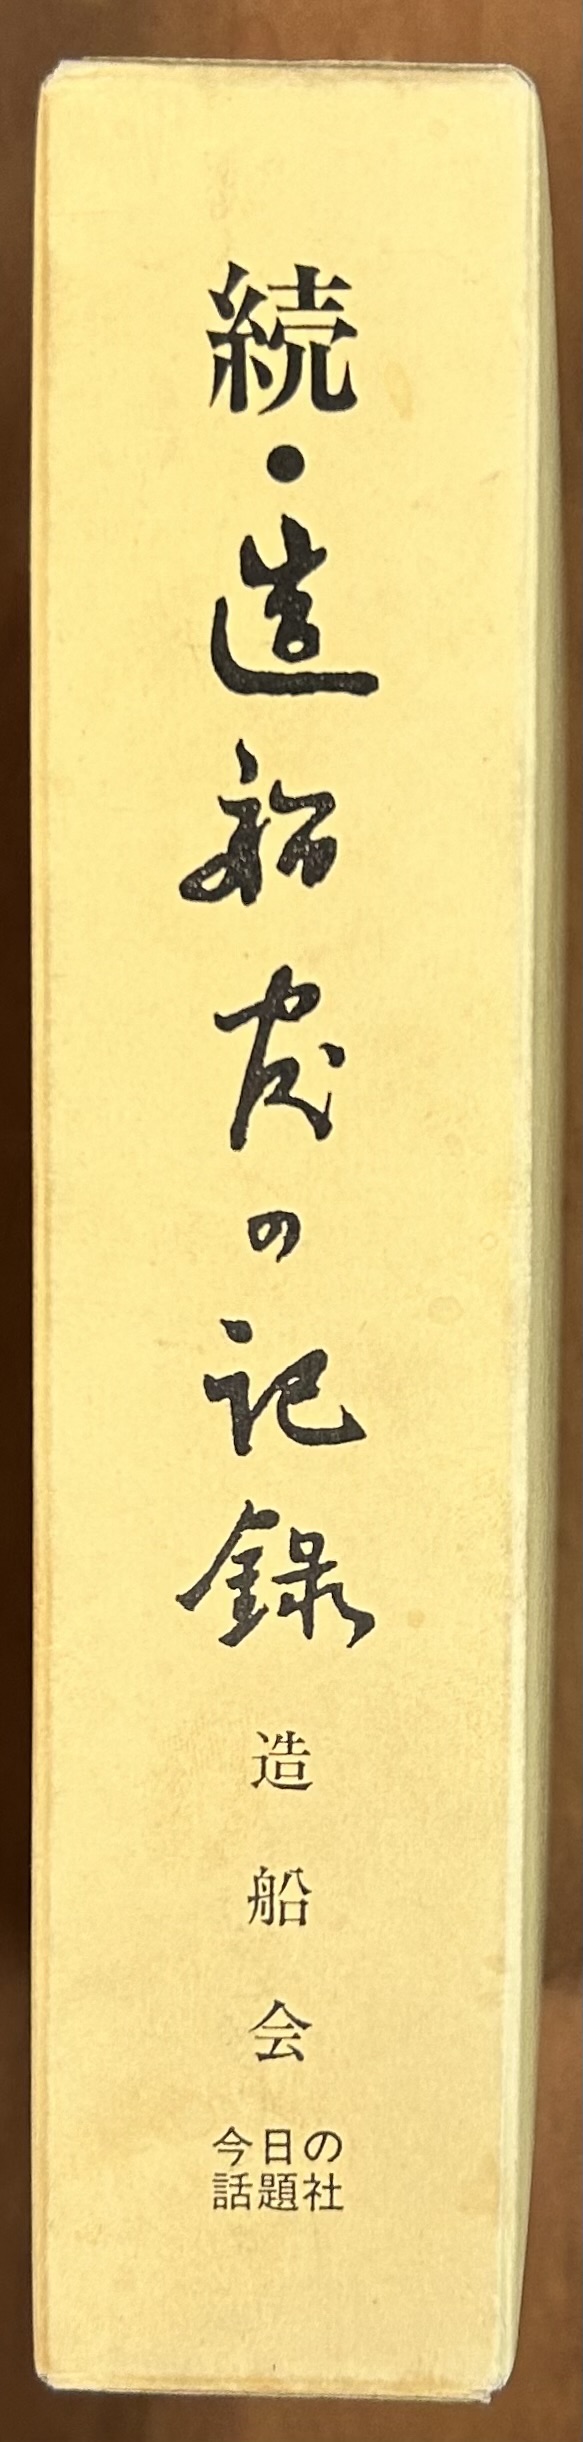 続・造船官の記録
造船会
今日の
話題社